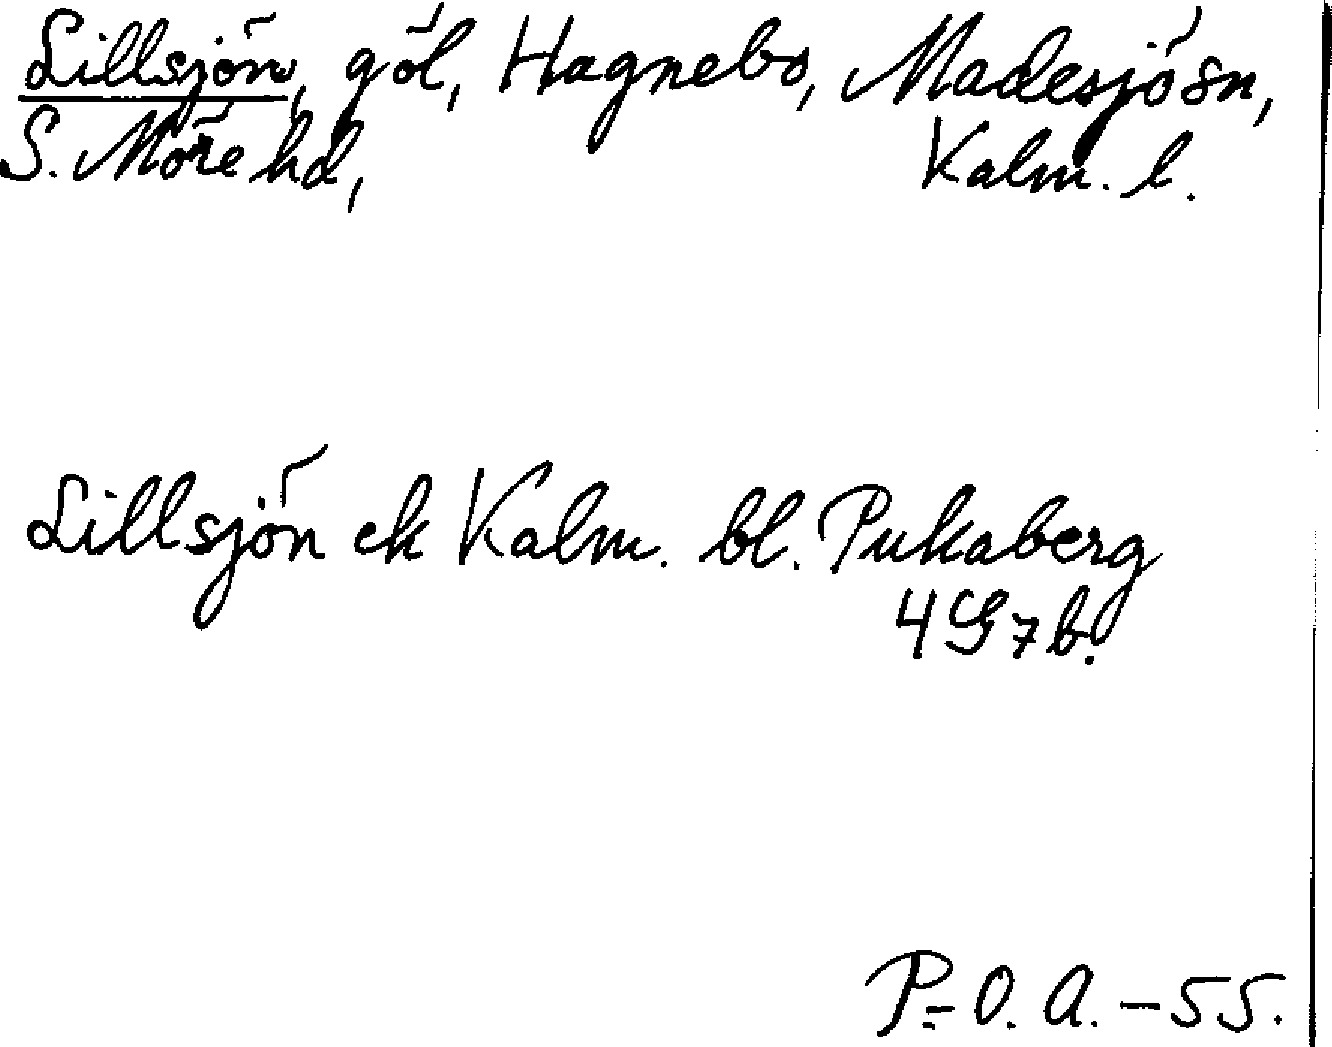 Lillsjön, göl, Hagnebo, Madesjö sn,
S. Möre hd, Kalm. l.
Lillsjön ek Kalm. bl. Pukaberg
4G7b.
P-O. A. - 55.